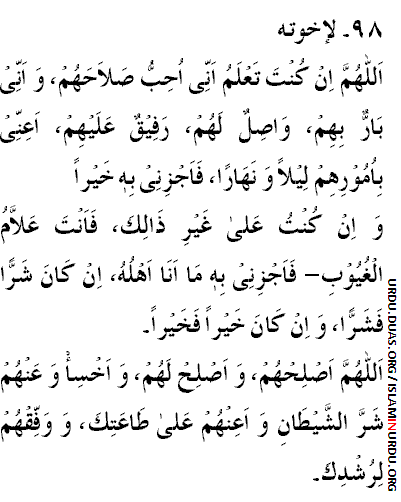 ۹۸۔ لإخوته
اَللّٰهُمَّ اِنْ كُنْتَ تَعْلَمُ اَنِّى اُحِبُّ صَلَاحَهُمْ، وَ اَنِّىْ
بَارٌّ بِهِمْ، وَاصِلٌ لَهُمْ، رَفِيْقٌ عَلَيْهِمْ، اَعِنِّىْ
بِاُمُوْرِهِمْ لَيْلاً وَ نَهَارًا، فَاَجْزِنِىْ بِهٖ خَيْراً
وَ اِنْ كُنْتُ عَلىٰ غَيْرِ ذَالِكَ، فَاَنْتَ عَلاَّمُ
الْغُيُوْبِ– فَاَجْزِنِىْ بِهٖ مَا اَنَا اَهْلُهُ، اِنْ كَانَ شَرًّا
فَشَرًّا، وَ اِنْ كَانَ خَيْراً فَخَيْراً۔
اَللّٰهُمَّ اَصْلِحْهُمْ، وَ اَصْلِحْ لَهُمْ، وَ اَخْسِأْ وَ عَنْهُمْ
شَرَّ الشَّيْطَانِ وَ اَعِنْهُمْ عَلىٰ طَاعَتِكَ، وَ وَفِّقْهُمْ
لِرُشْدِكَ۔
URDU.DUAS.ORG / ISLAMINURDU.ORG